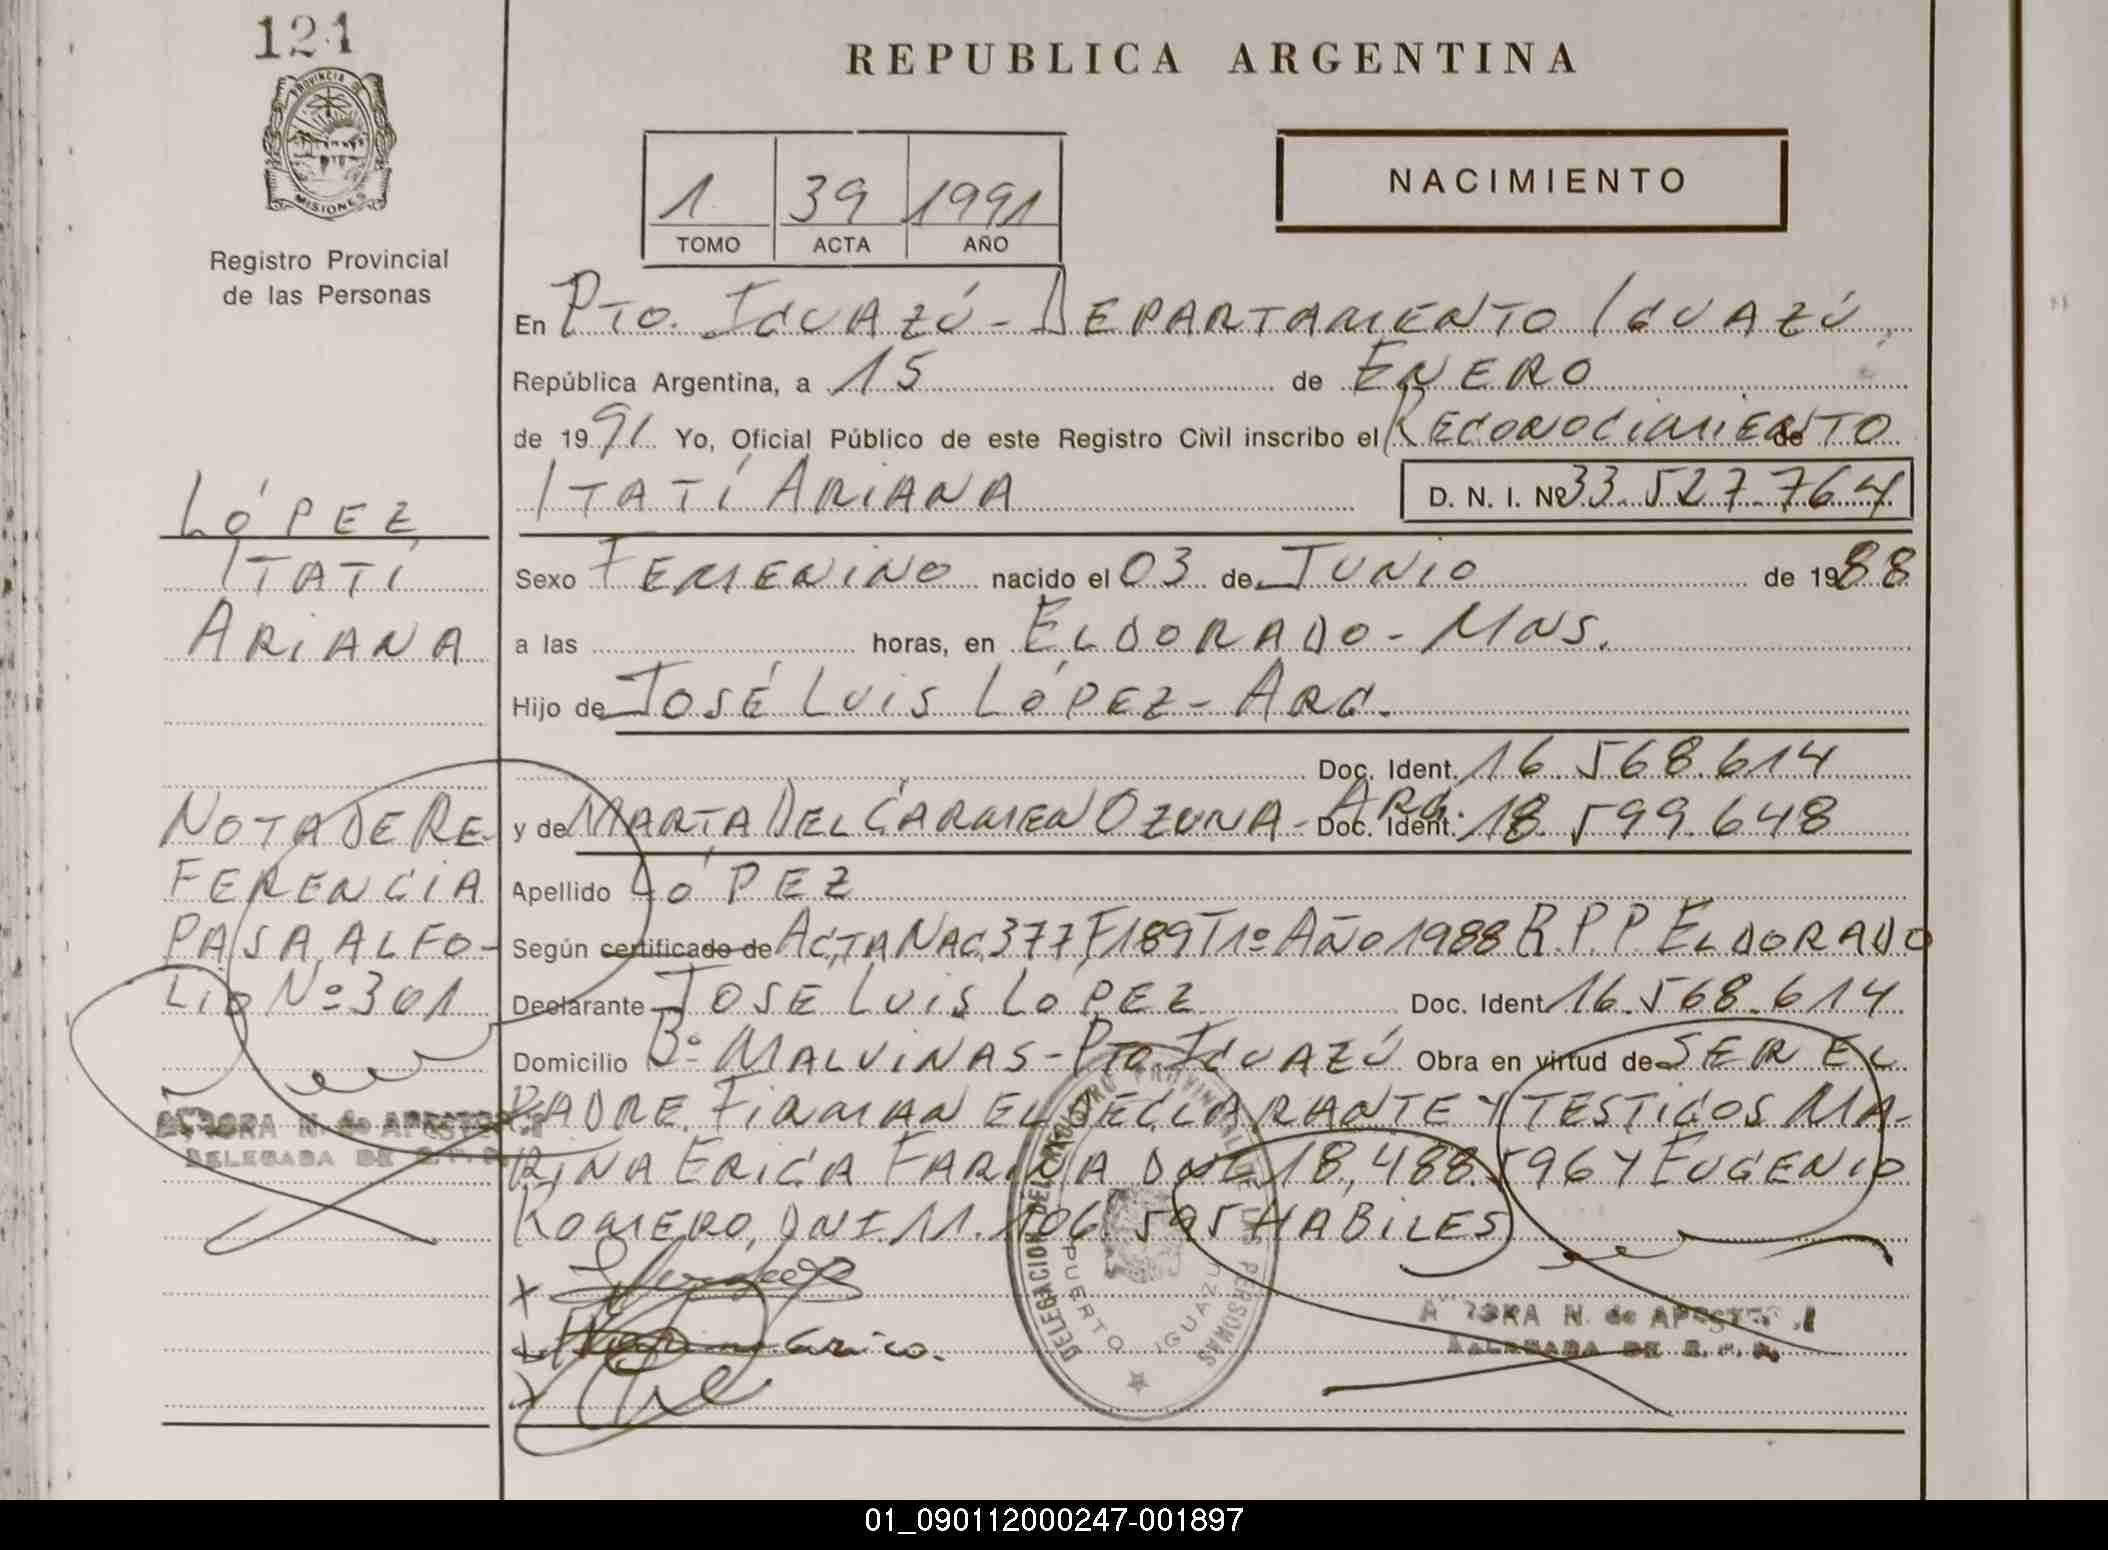 121
PROVINCIA DE
MISIONES
Registro Provincial
de las Personas
REPUBLICA ARGENTINA
NACIMIENTO
1 39 1991
TOMO ACTA AÑO
En PTO. IGUAZÚ - DEPARTAMENTO IGUAZÚ,
República Argentina, a 15 de ENERO
de 1991 Yo, Oficial Público de este Registro Civil inscribo el RECONOCIMIENTO de
ITATÍ ARIANA D. N. I. Nº 33.527.764
LÓPEZ,
ITATÍ
ARIANA
Sexo FEMENINO nacido el 03 de JUNIO de 1988
a las horas, en ELDORADO - MNS.
Hijo de JOSÉ LUIS LÓPEZ - ARG.
Doc. Ident. 16.568.614
y de MARTA DEL CARMEN OZUNA - ARG. Doc. Ident. 18.599.648
Apellido LÓPEZ
Según certificado de ACTA NAC. 377 F189 T1º AÑO 1988 R.P.P. ELDORADO
Declarante JOSE LUIS LOPEZ Doc. Ident 16.568.614
Domicilio Bº MALVINAS - PTO. IGUAZÚ Obra en virtud de SER EL
PADRE. FIRMAN EL DECLARANTE Y TESTIGOS MA-
RINA ERICA FARINA DNI 18.488.596 Y EUGENIO
ROMERO, DNI 11.106.595 HABILES
NOTA DE RE-
FERENCIA
PASA AL FO-
LIO Nº 301
N. de
DELEGADA DE R.P.P.
DELEGACION DEL REGISTRO PROVINCIAL DE LAS PERSONAS
PUERTO IGUAZU
N. de
DELEGADA DE R.P.P.
01_090112000247-001897